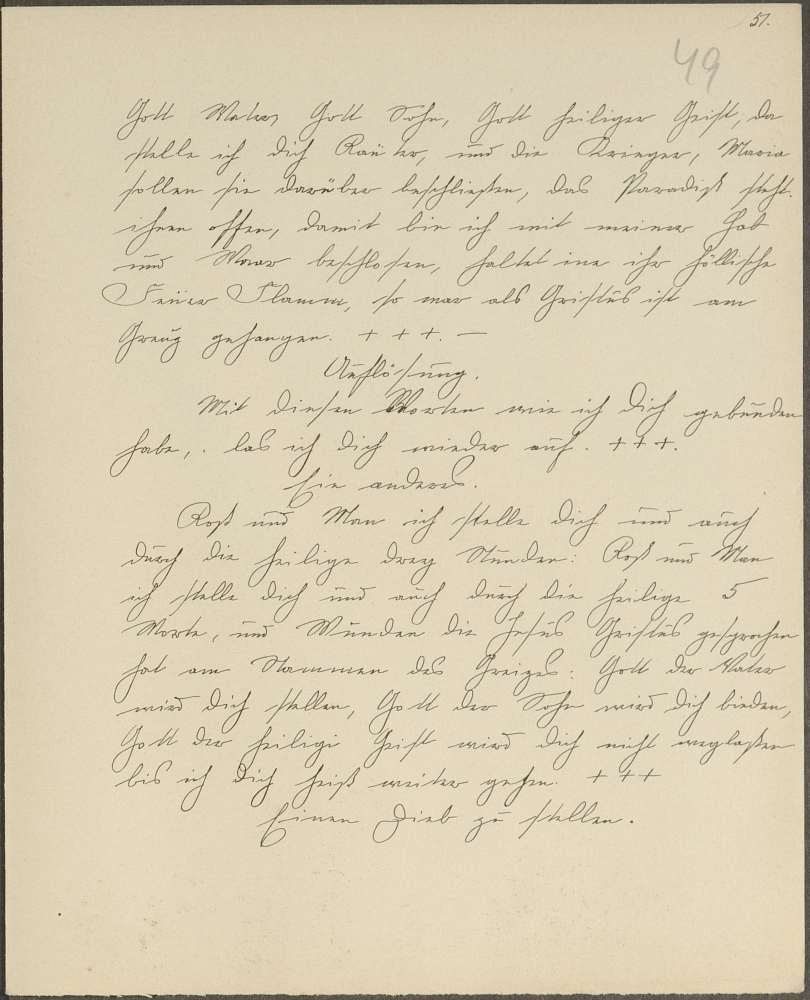 51.
49
Gott Vater, Gott Sohn, Gott heiliger Geist, da
stelle ich dich Räuber, und die Krieger, Maria
sollen sie darüber beschließen, das Paradiß steht
ihnen offen, damit bin ich mit meiner Hab
und Waar beschlosen, haltet ine ihr höllische
Feüer Flamm, so war als Christus ist am
Greuz gehangen. + + +. —
Auflösung.
Mit diesen Worten wie ich dich gebunden
habe, . las ich dich wieder auf. + + +.
Ein anderes.
Roß und Man ich stelle dich und auch
durch die heilige drey Stunden: Roß und Man
ich stelle dich und auch durch die heilige 5
Worte, und Wunden die Jesus Christus gesprochen
hat am Stammen des Greizes: Gott der Vater
wird dich stellen, Gott der Sohn wird dich binden,
Gott der heilige Geist wird dich nicht weglaßen
bis ich dich heiß weiter gehen. + + +
Einen Dieb zu stellen.